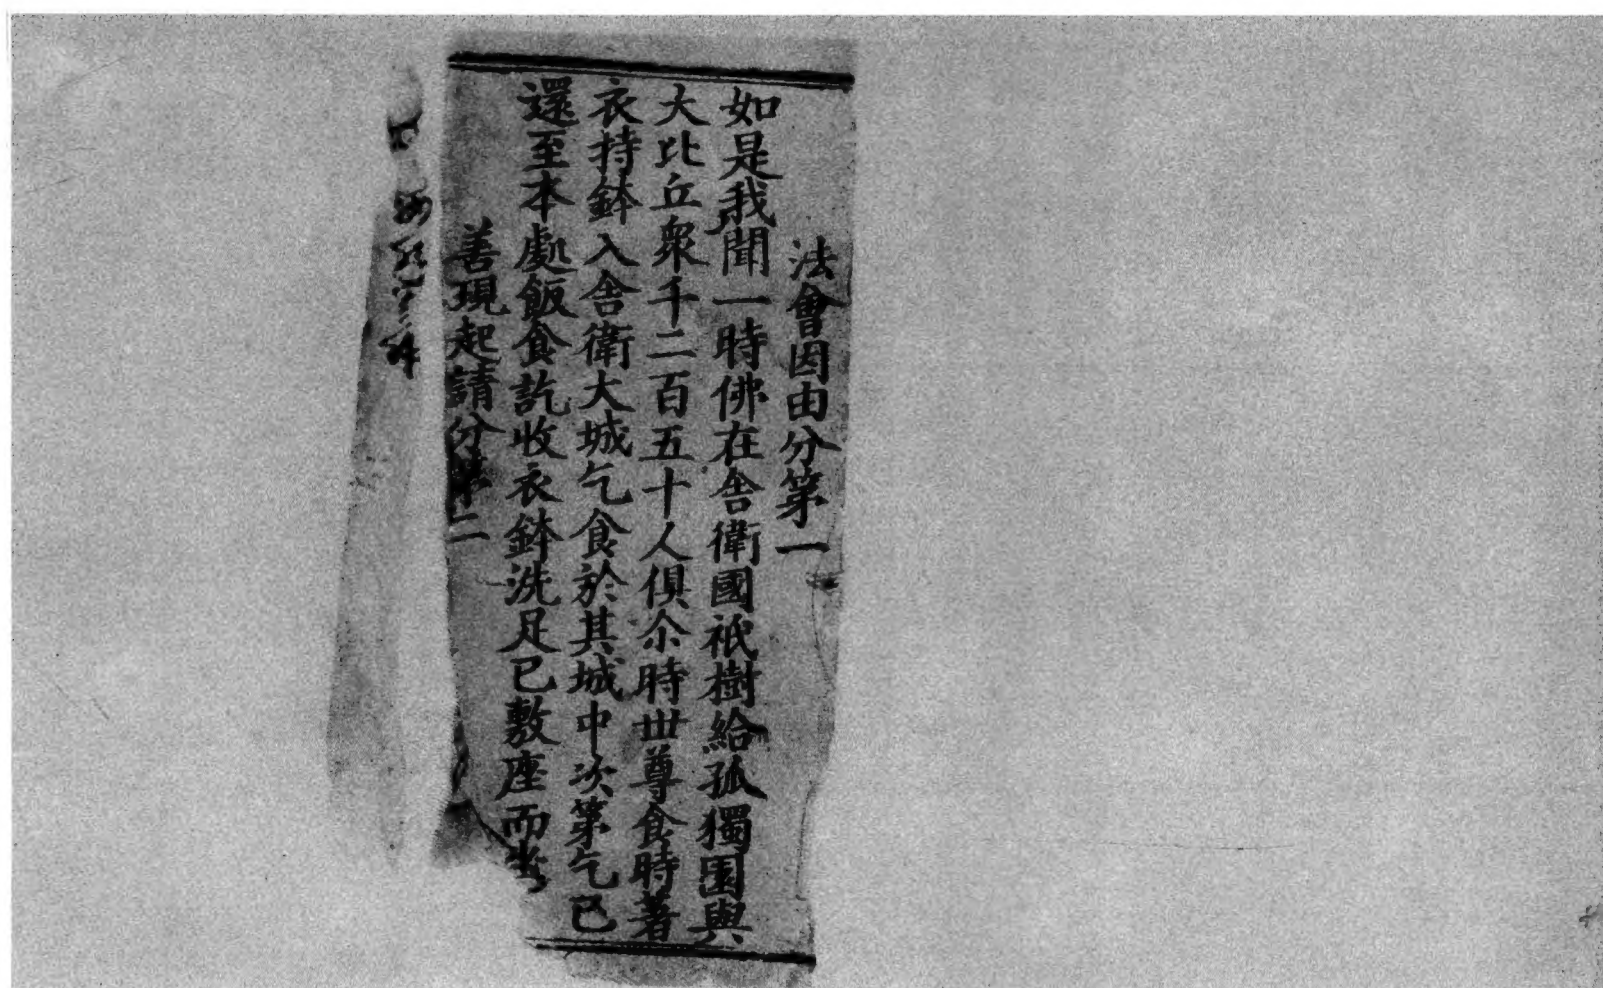 法會因由分第一
如是我聞一時佛在舍衛國祇樹給孤獨園與
大比丘眾千二百五十人俱尒時世尊食時著
衣持鉢入舍衛大城乞食於其城中次第乞已
還至本處飯食訖收衣鉢洗足已敷座而坐
善現起請分第二